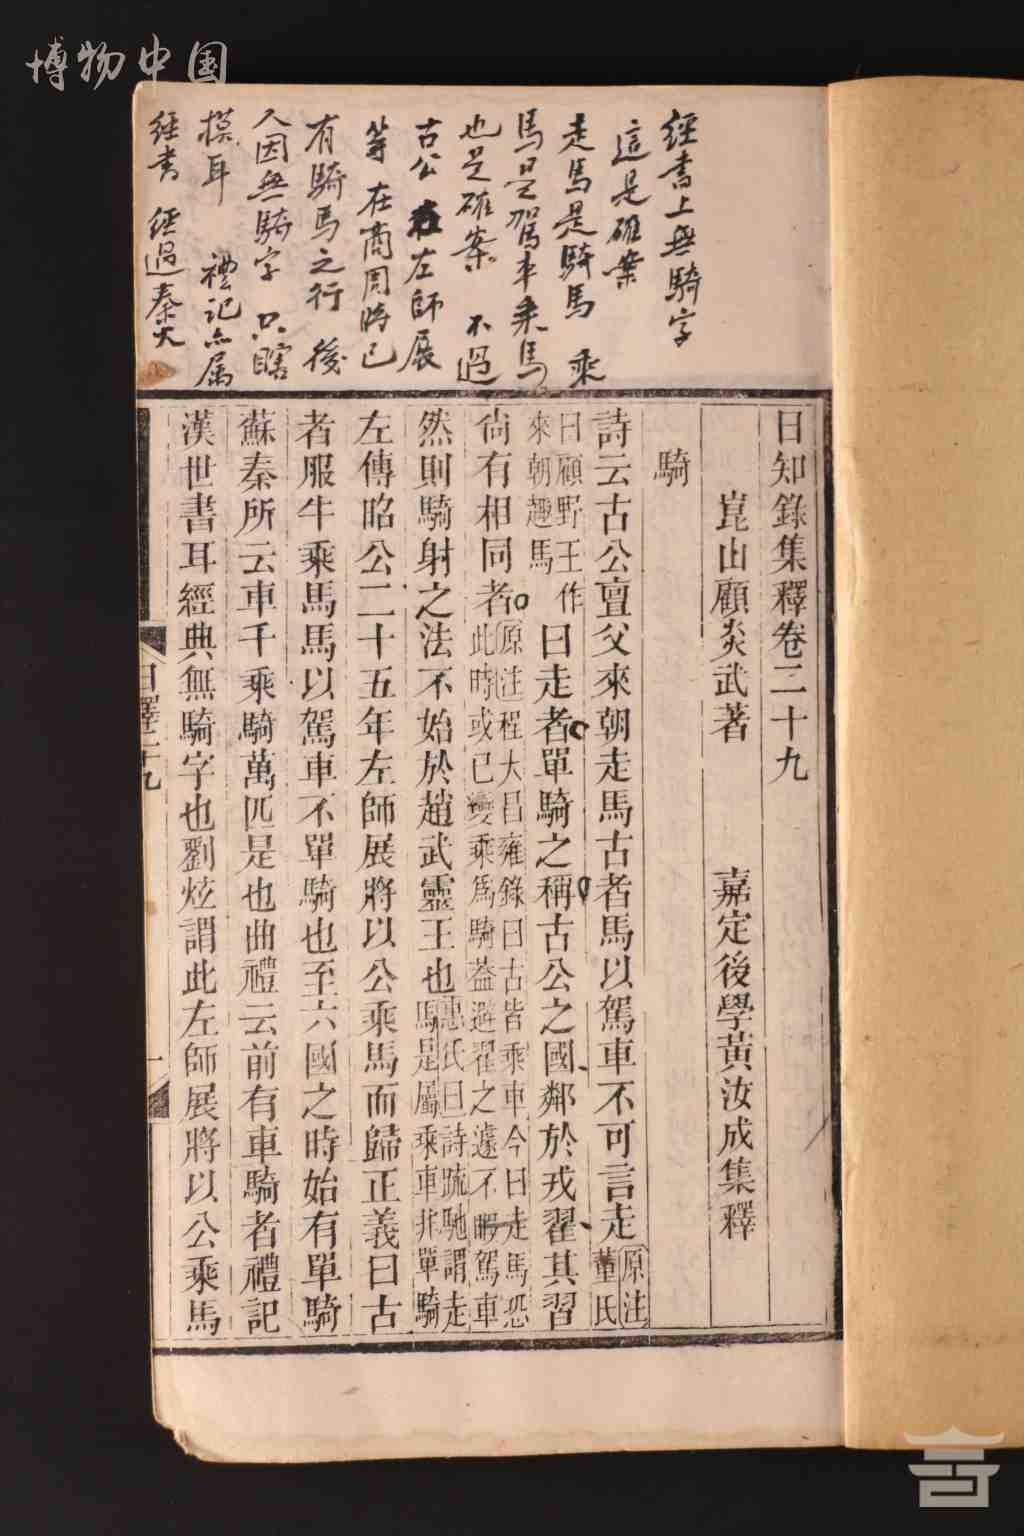 博物中国
經書上無騎字
這是確案
走馬是騎馬 乘
馬是駕车乘馬
也是確案 不過
古公 左師展
等 在商周時已
有騎馬之行 後
人因無騎字 只瞎
摸耳 禮記亦屬
經書 經過秦火
日知錄集釋卷二十九
崑山顧炎武著 嘉定後學黃汝成集釋
騎
詩云古公亶父來朝走馬古者馬以駕車不可言走原注董氏
曰顧野王作來朝趣馬曰走者單騎之稱古公之國鄰於戎翟其習
尙有相同者原注程大昌雍錄曰古皆乘車今曰走馬恐此時或已變乘爲騎葢避翟之遽不暇駕車
然則騎射之法不始於趙武靈王也惠氏曰詩䟽馳謂走馬是屬乘車非單騎
左傳昭公二十五年左師展將以公乘馬而歸正義曰古
者服牛乘馬馬以駕車不單騎也至六國之時始有單騎
蘇秦所云車千乘騎萬匹是也曲禮云前有車騎者禮記
漢世書耳經典無騎字也劉炫謂此左師展將以公乘馬
日釋二十九
一